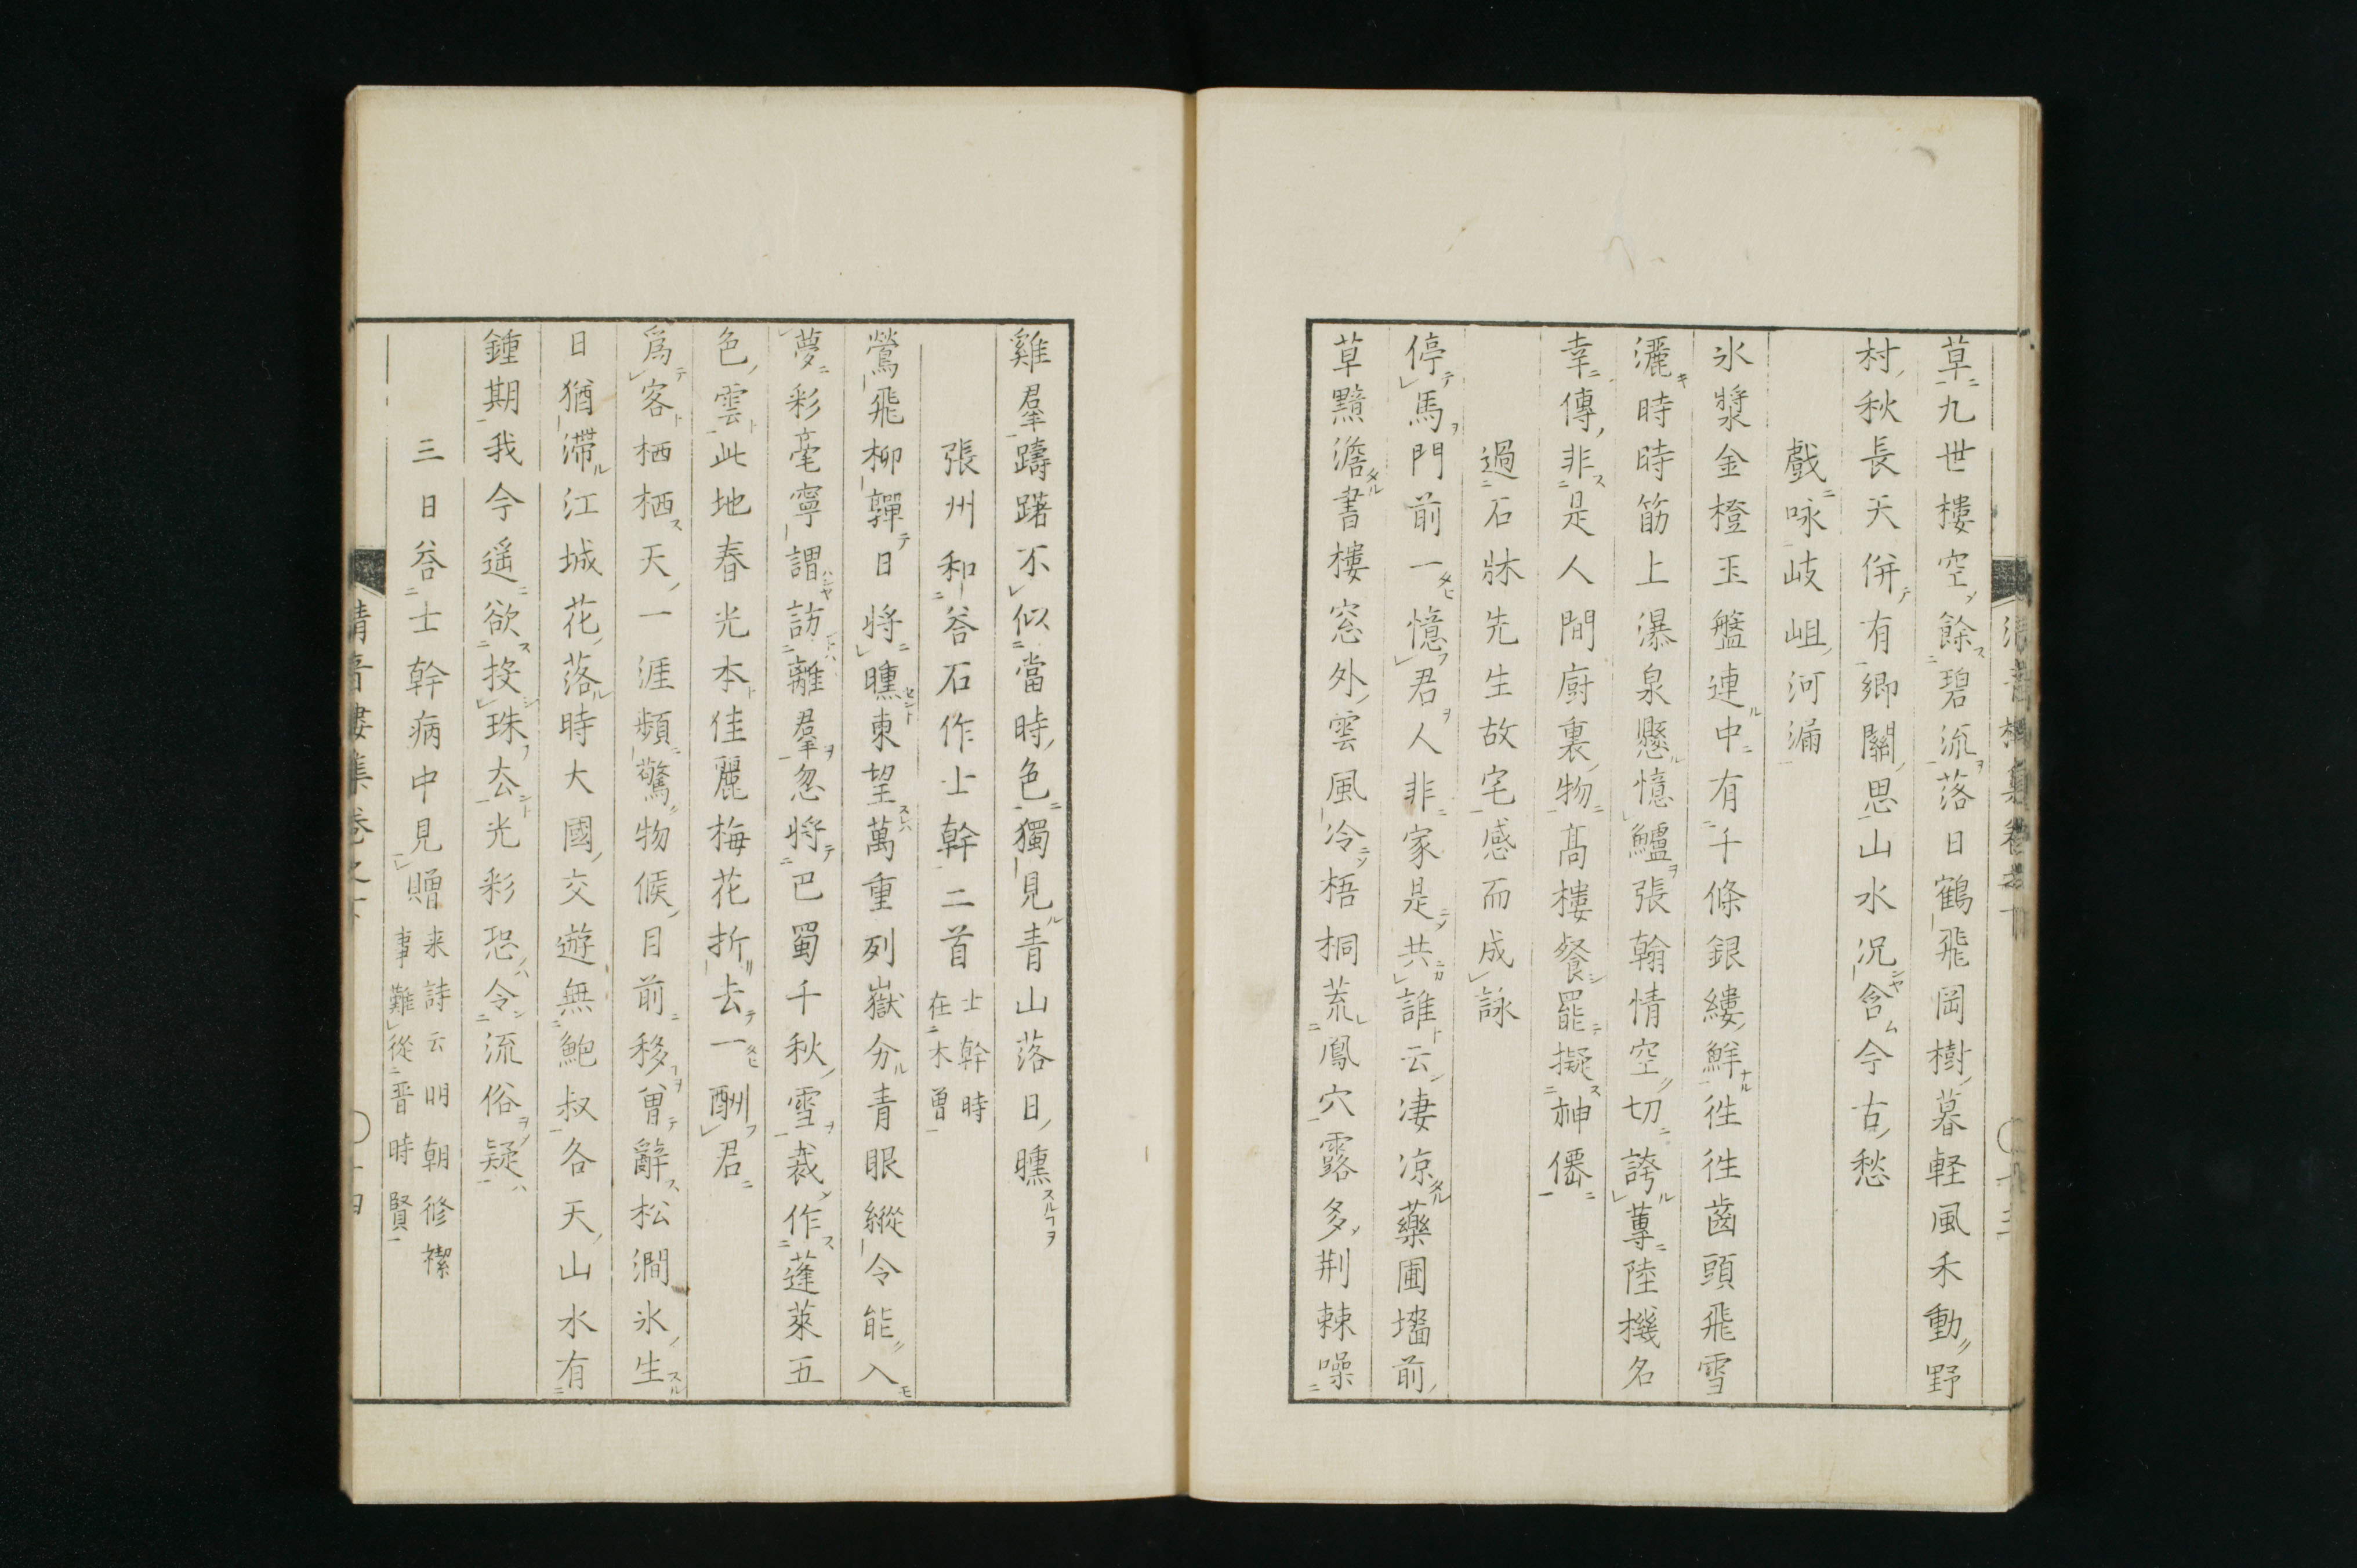 草九世樓空餘碧流落日鶴飛岡樹暮軽風禾動野
村秋長天併有郷關思山水况含今古愁
戯咏岐岨河漏
氷漿金橙玉盤連中有千條銀縷鮮徃徃齒頭飛雪
灑時時筋上瀑泉懸憶鱸張翰情空切誇蓴陸機名
幸傳非是人間廚裏物髙樓餐罷擬神僊
過石牀先生故宅感而成詠
停馬門前一憶君人非家是共誰云凄凉藥圃墻前
草黯澹書樓窓外雲風冷梧桐荒鳳穴露多荆棘噪
雞羣躊躇不似當時色獨見青山落日曛
張州和荅石作士幹二首 士幹時在木曽
鶯飛柳嚲日將曛東望萬重列嶽分青眼縱令能入
夢彩毫寧謂訪離羣忽將巴蜀千秋雪裁作蓬萊五
色雲此地春光本佳麗梅花折去一酬君
爲客栖栖天一涯頻驚物候目前移曽辭松澗氷生
日猶滞江城花落時大國交遊無鮑叔各天山水有
鍾期我今遥欲投珠去光彩恐令流俗疑
三日荅士幹病中見贈 来詩云明朝修禊事難從晋時賢
清音樓集卷之下 〇十四